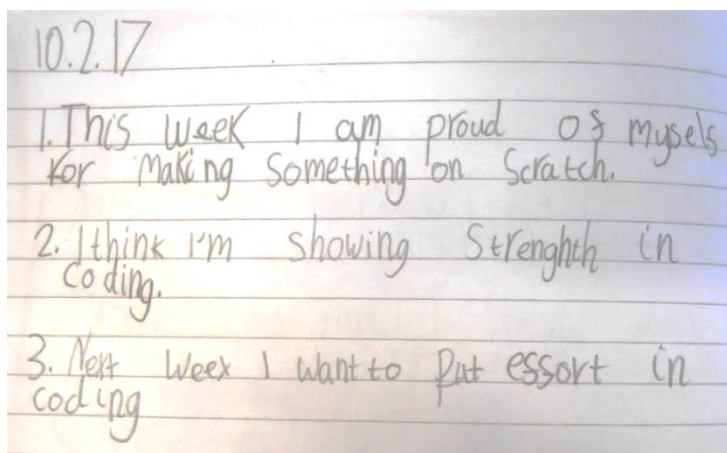 10.2.17
1. This week I am proud of myself
for making something on Scratch.
2. I think I'm showing Strenghth in
coding.
3. Next week I want to put effort in
coding